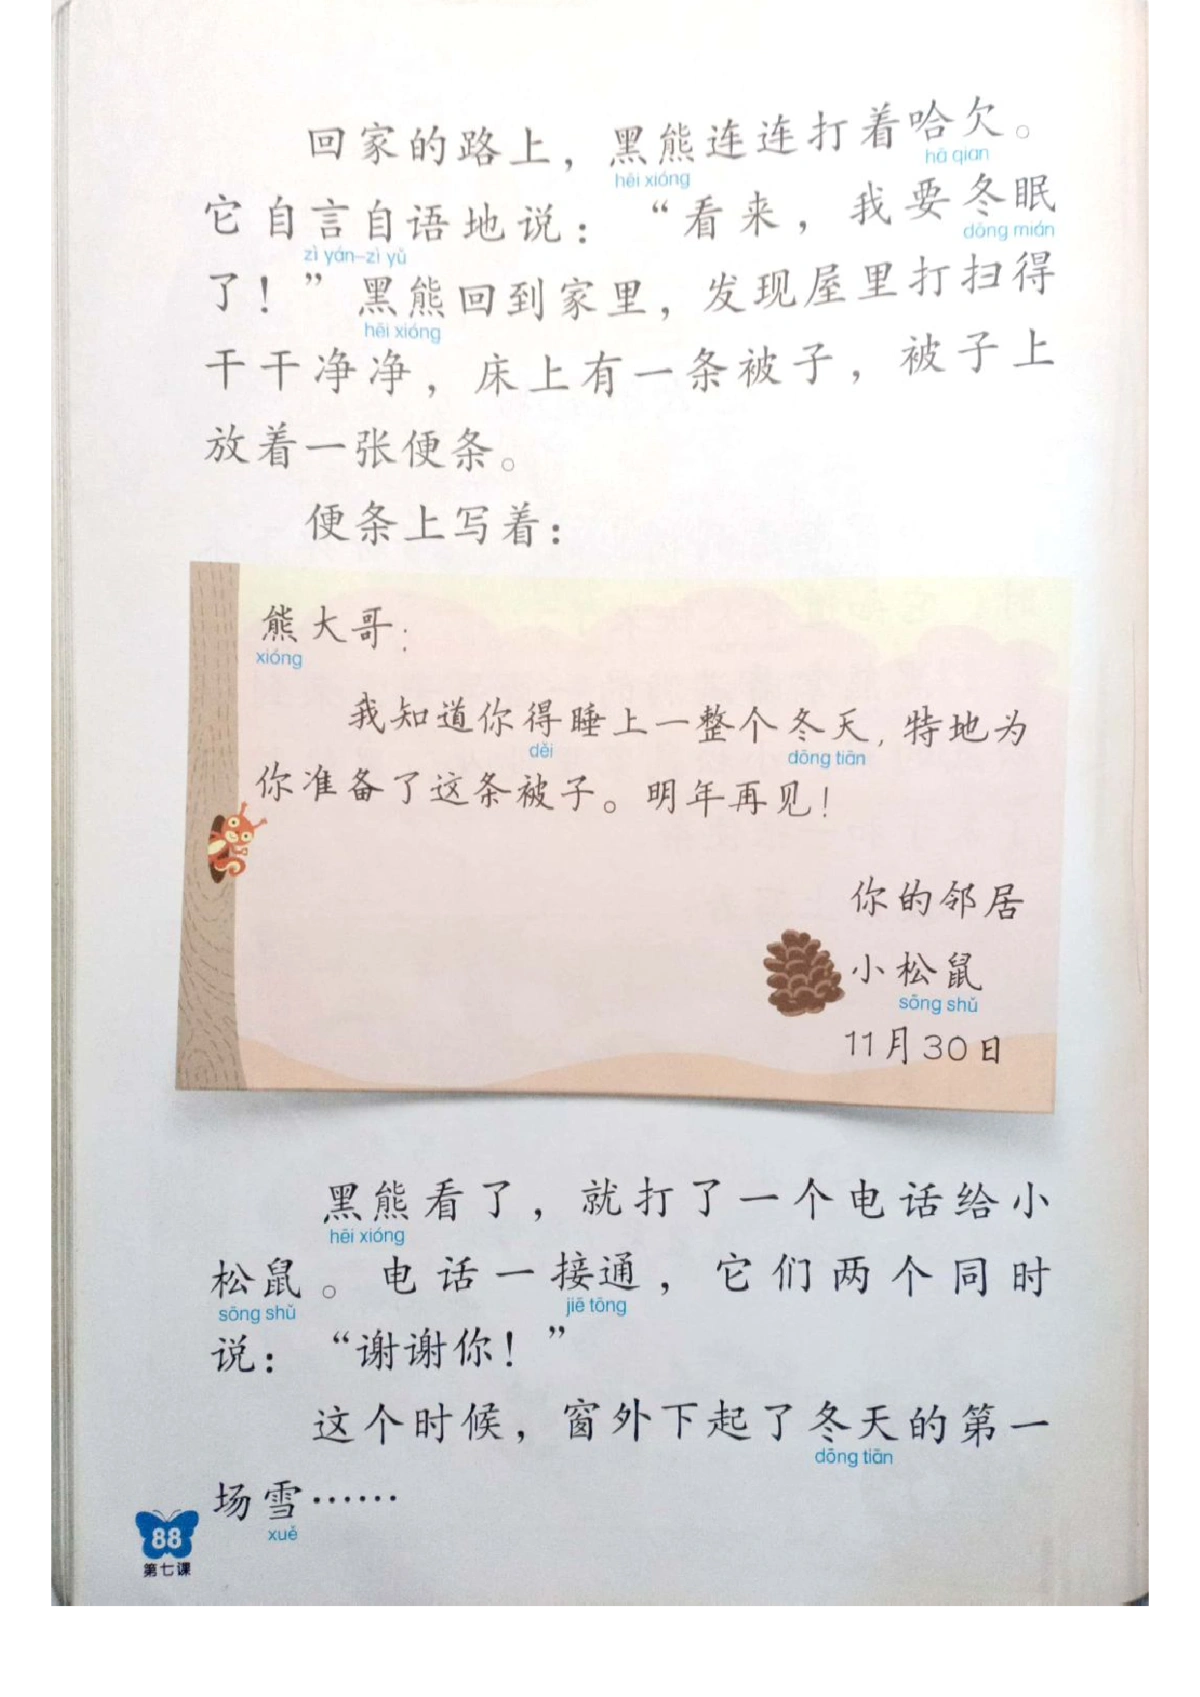 回家的路上，黑熊连连打着哈欠。
hēi xióng hā qian
它自言自语地说：“看来，我要冬眠
zì yán-zì yǔ dōng mián
了！”黑熊回到家里，发现屋里打扫得
hēi xióng
干干净净，床上有一条被子，被子上
放着一张便条。
便条上写着：
熊大哥：
xióng
我知道你得睡上一整个冬天，特地为
děi dōng tiān
你准备了这条被子。明年再见！
你的邻居
小松鼠
sōng shǔ
11月30日
黑熊看了，就打了一个电话给小
hēi xióng
松鼠。电话一接通，它们两个同时
sōng shǔ jiē tōng
说：“谢谢你！”
这个时候，窗外下起了冬天的第一
dōng tiān
场雪……
xuě
88
第七课